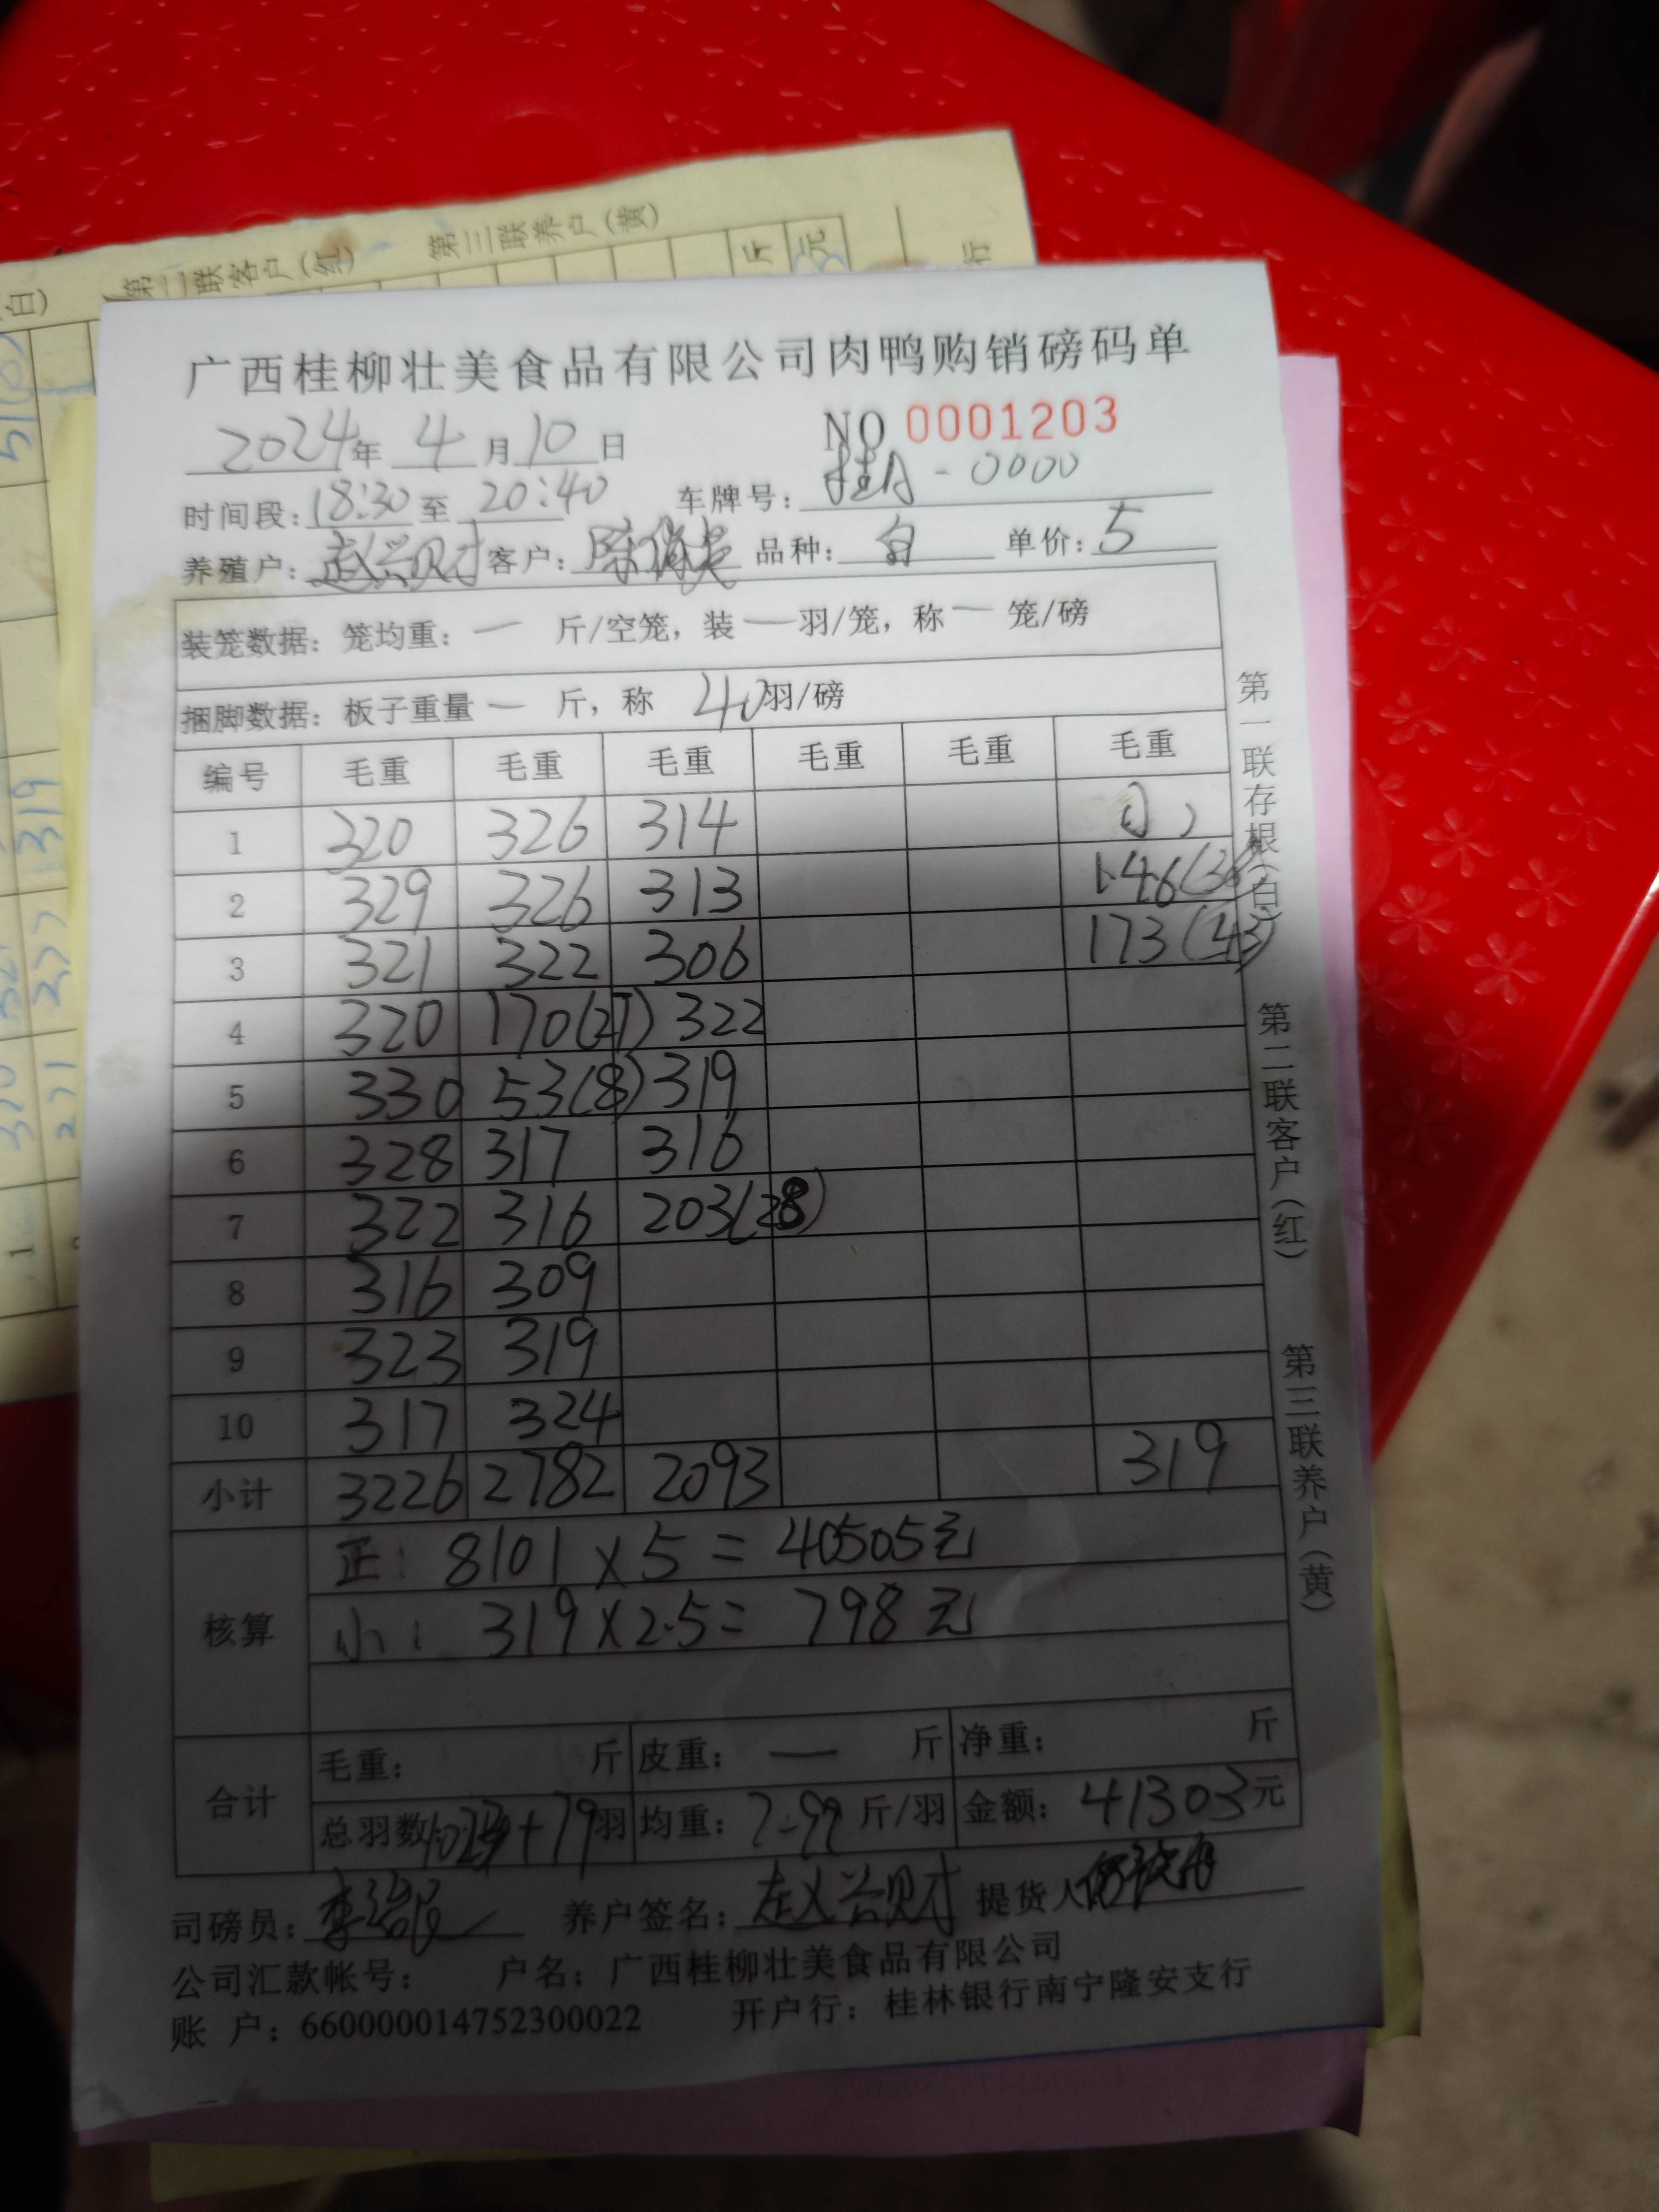 第二联客户(红) 第三联养户(黄)
白)
斤
元
行
广西桂柳壮美食品有限公司肉鸭购销磅码单
2024年 4月10日 NO 0001203
时间段:18:30至20:40 车牌号:桂A-0000
养殖户:赵兴财 客户: 品种:白 单价:5
装笼数据:笼均重:一 斤/空笼,装一羽/笼,称一 笼/磅
捆脚数据:板子重量一 斤,称 40羽/磅
编号 毛重 毛重 毛重 毛重 毛重 毛重
1 320 326 314
2 329 326 313 146(36)
3 321 322 306 173(43)
4 320 170(21) 322
5 330 53(8) 319
6 328 317 316
7 322 316 203(28)
8 316 309
9 323 319
10 317 324
小计 3226 2782 2093 319
核算
正: 8101×5=40505元
小: 319×2.5= 798元
合计
毛重: 斤 皮重: 一 斤 净重: 斤
总羽数: +79羽 均重:7.99斤/羽 金额:41303元
司磅员: 养户签名:赵兴财 提货人
公司汇款帐号: 户名:广西桂柳壮美食品有限公司
账 户:660000014752300022 开户行:桂林银行南宁隆安支行
第一联存根(白) 第二联客户(红) 第三联养户(黄)